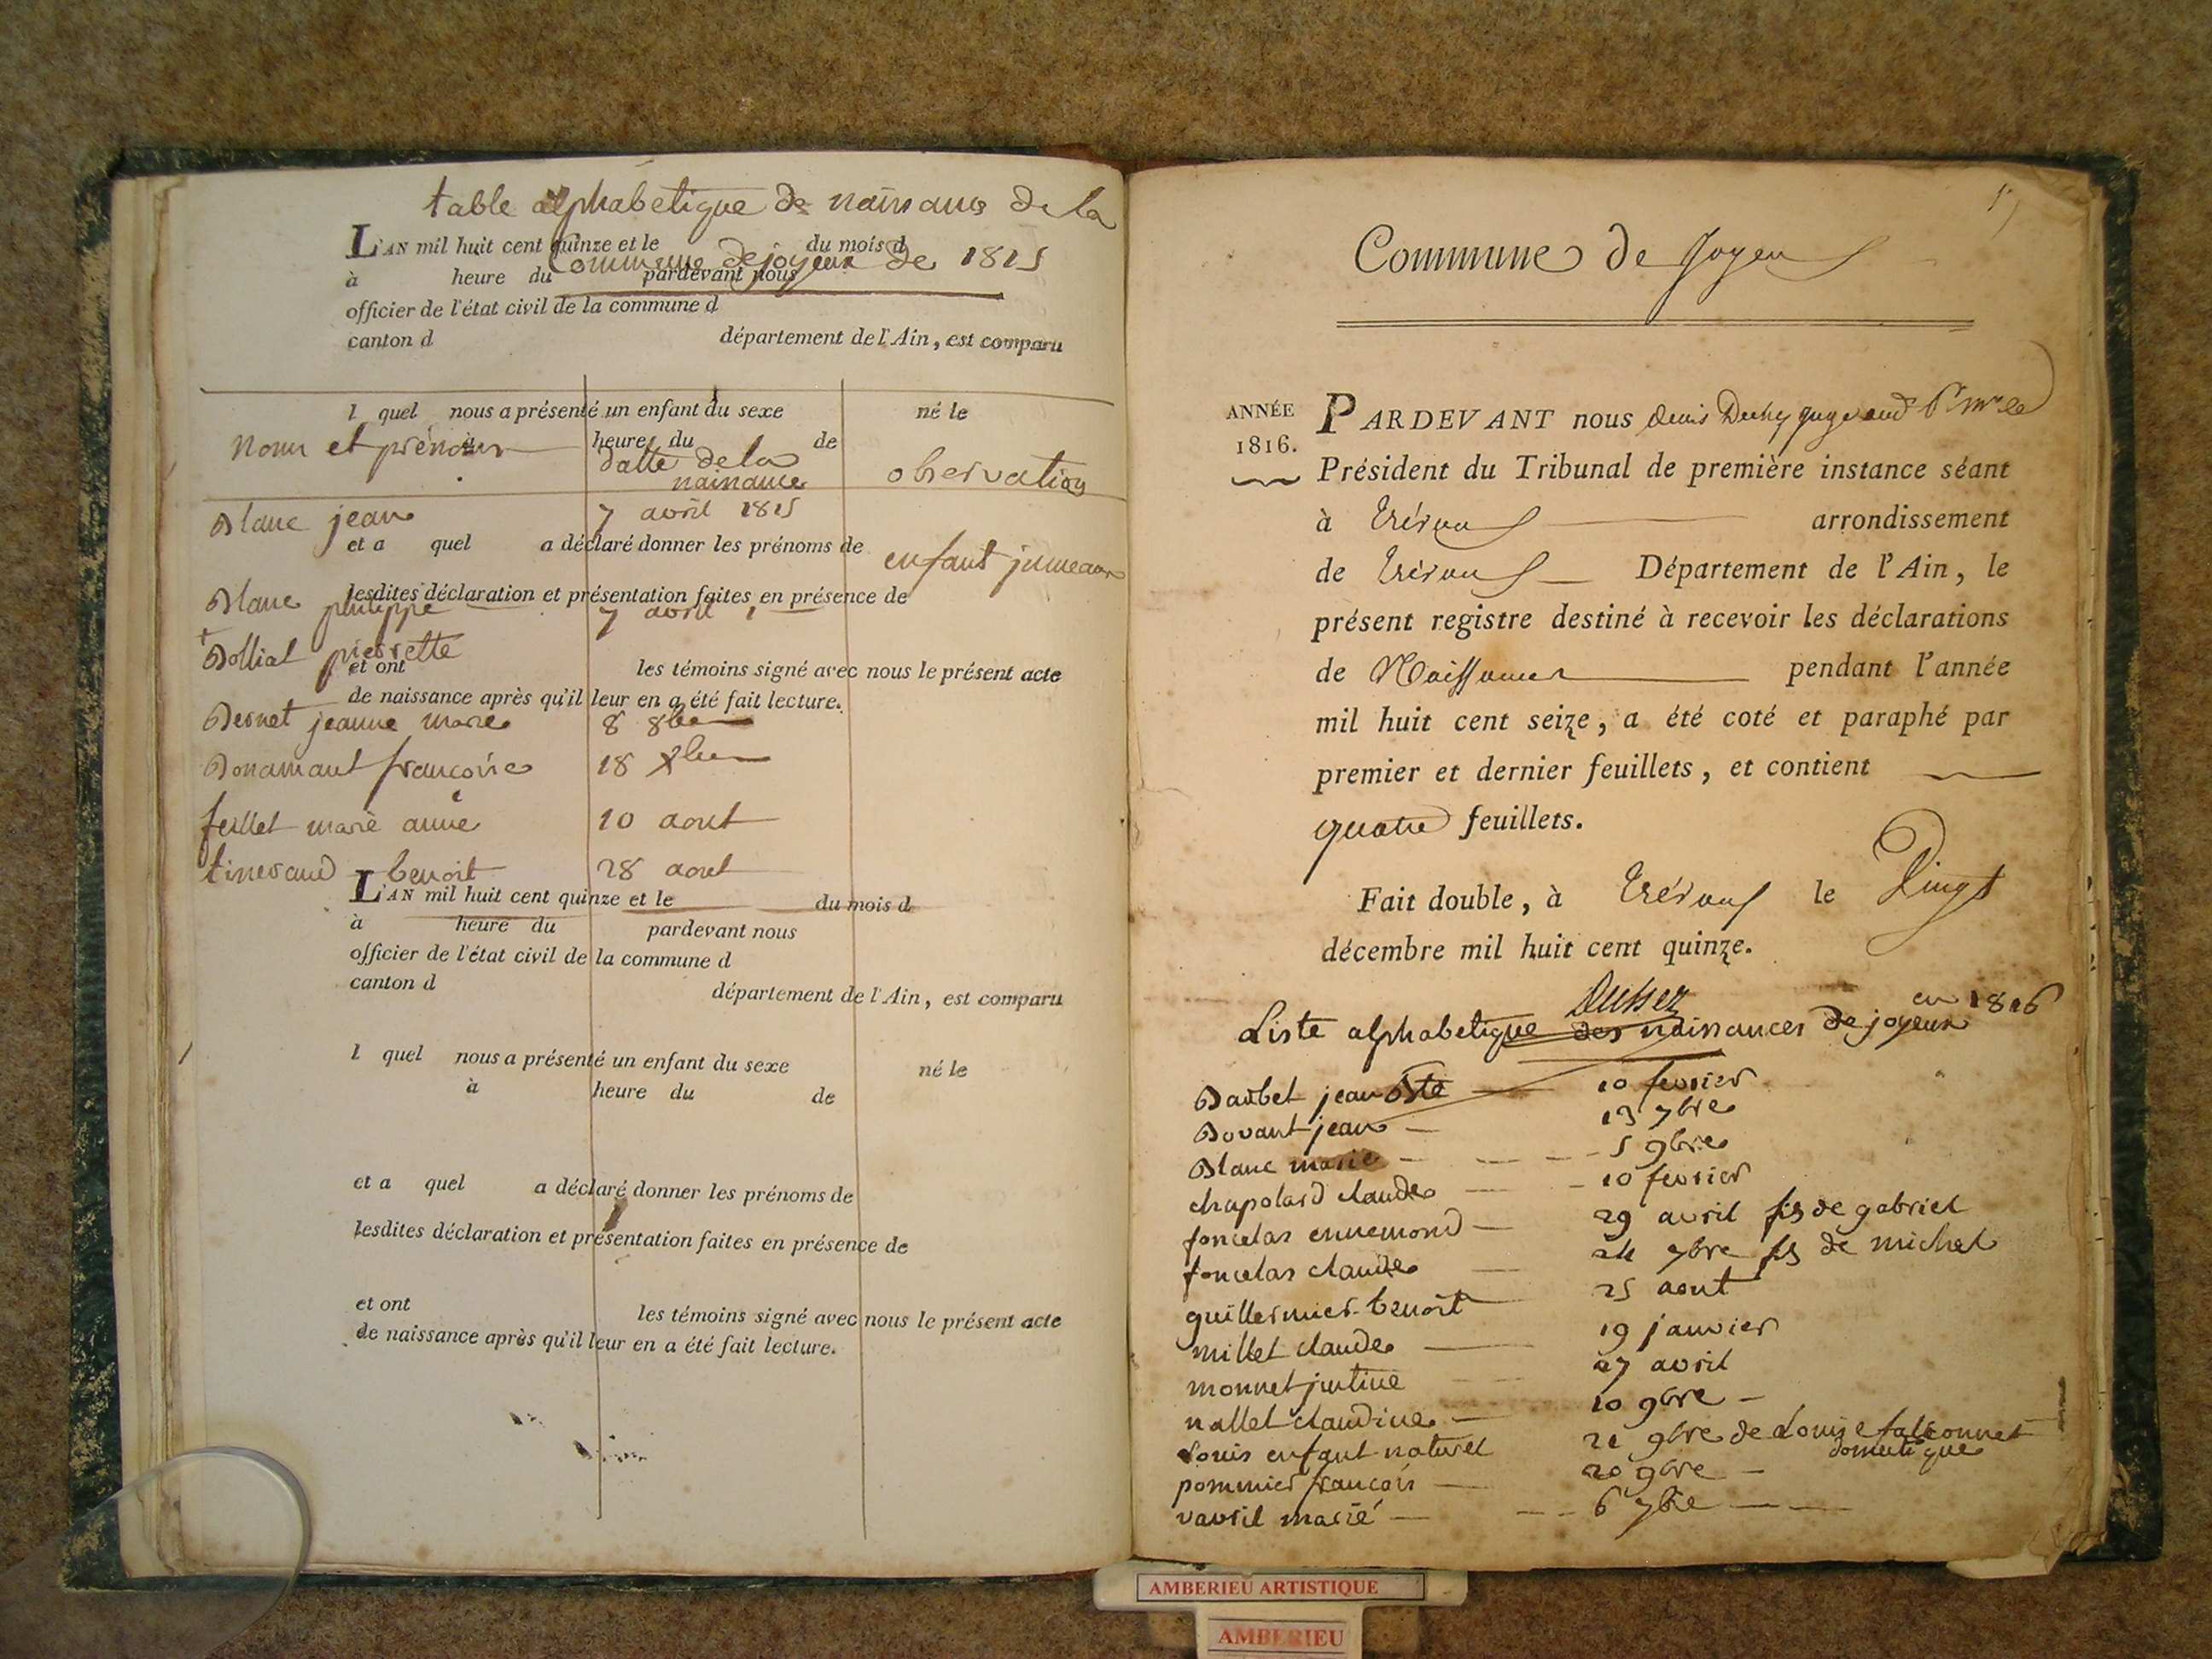 table alphabetique de naissance de la
L'AN mil huit cent quinze et le du mois d
commune de joyeux de 1815
à heure du pardevant nous
officier de l'état civil de la commune d
canton d département de l'Ain, est comparu
l quel nous a présenté un enfant du sexe né le
à heure du de
Noms et prénoms datte de la naissance observation
Blanc jean 7 avril 1815
et a quel a déclaré donner les prénoms de
enfant jumeaux
lesdites déclaration et présentation faites en présence de
Blanc philippe 7 avril
Bolliat pierrette
et ont les témoins signé avec nous le présent acte
de naissance après qu'il leur en a été fait lecture.
Bernet jeanne marie 8 8bre
Bonamant françoise 18
feillet marie anne 10 aout
tineraud benoit 28 aout
L'AN mil huit cent quinze et le du mois d
à heure du pardevant nous
officier de l'état civil de la commune d
canton d département de l'Ain, est comparu
l quel nous a présenté un enfant du sexe né le
à heure du de
et a quel a déclaré donner les prénoms de
lesdites déclaration et présentation faites en présence de
et ont les témoins signé avec nous le présent acte
de naissance après qu'il leur en a été fait lecture.
Commune de Joyeux
ANNÉE 1816.
PARDEVANT nous Denis
Président du Tribunal de première instance séant
à Trévoux arrondissement
de Trévoux Département de l'Ain, le
présent registre destiné à recevoir les déclarations
de Naissances pendant l'année
mil huit cent seize, a été coté et paraphé par
premier et dernier feuillets, et contient
quatre feuillets.
Fait double, à Trévoux le Vingt
décembre mil huit cent quinze.
Liste alphabetique des naissances de joyeux en 1816
Barbet jean Bte 10 fevrier
Bovant jean 13 7bre
Blanc marie 5 9bre
chapolard claude 10 fevrier
foncelas ennemond 29 avril fis de gabriel
foncelas claude 24 7bre fis de michel
guillermier benoit 25 aout
millet claude 19 janvier
monnet justine 27 avril
nallet claudine 10 9bre
Louis enfant naturel 21 9bre de Louise falconnet
domestique
pommier françois 20 9bre
vavril marie 6 7bre
AMBERIEU ARTISTIQUE
AMBERIEU